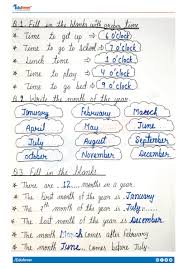 Q.1. Fill in the blanks with proper time
* Time to get up → 6 o'clock
* Time to go to school → 7 o'clock
* Lunch time → 1 o'clock
* Time to play → 4 o'clock
* Time to go to bed → 9 o'clock
Q.2. Write the month of the year.
January February March
April May June
July August September
October November December
Q.3. Fill in the blanks
* There are 12 months in a year.
* The first month of the year is January
* The last month of the year is December
* The month March comes after February
* The month June comes before July.